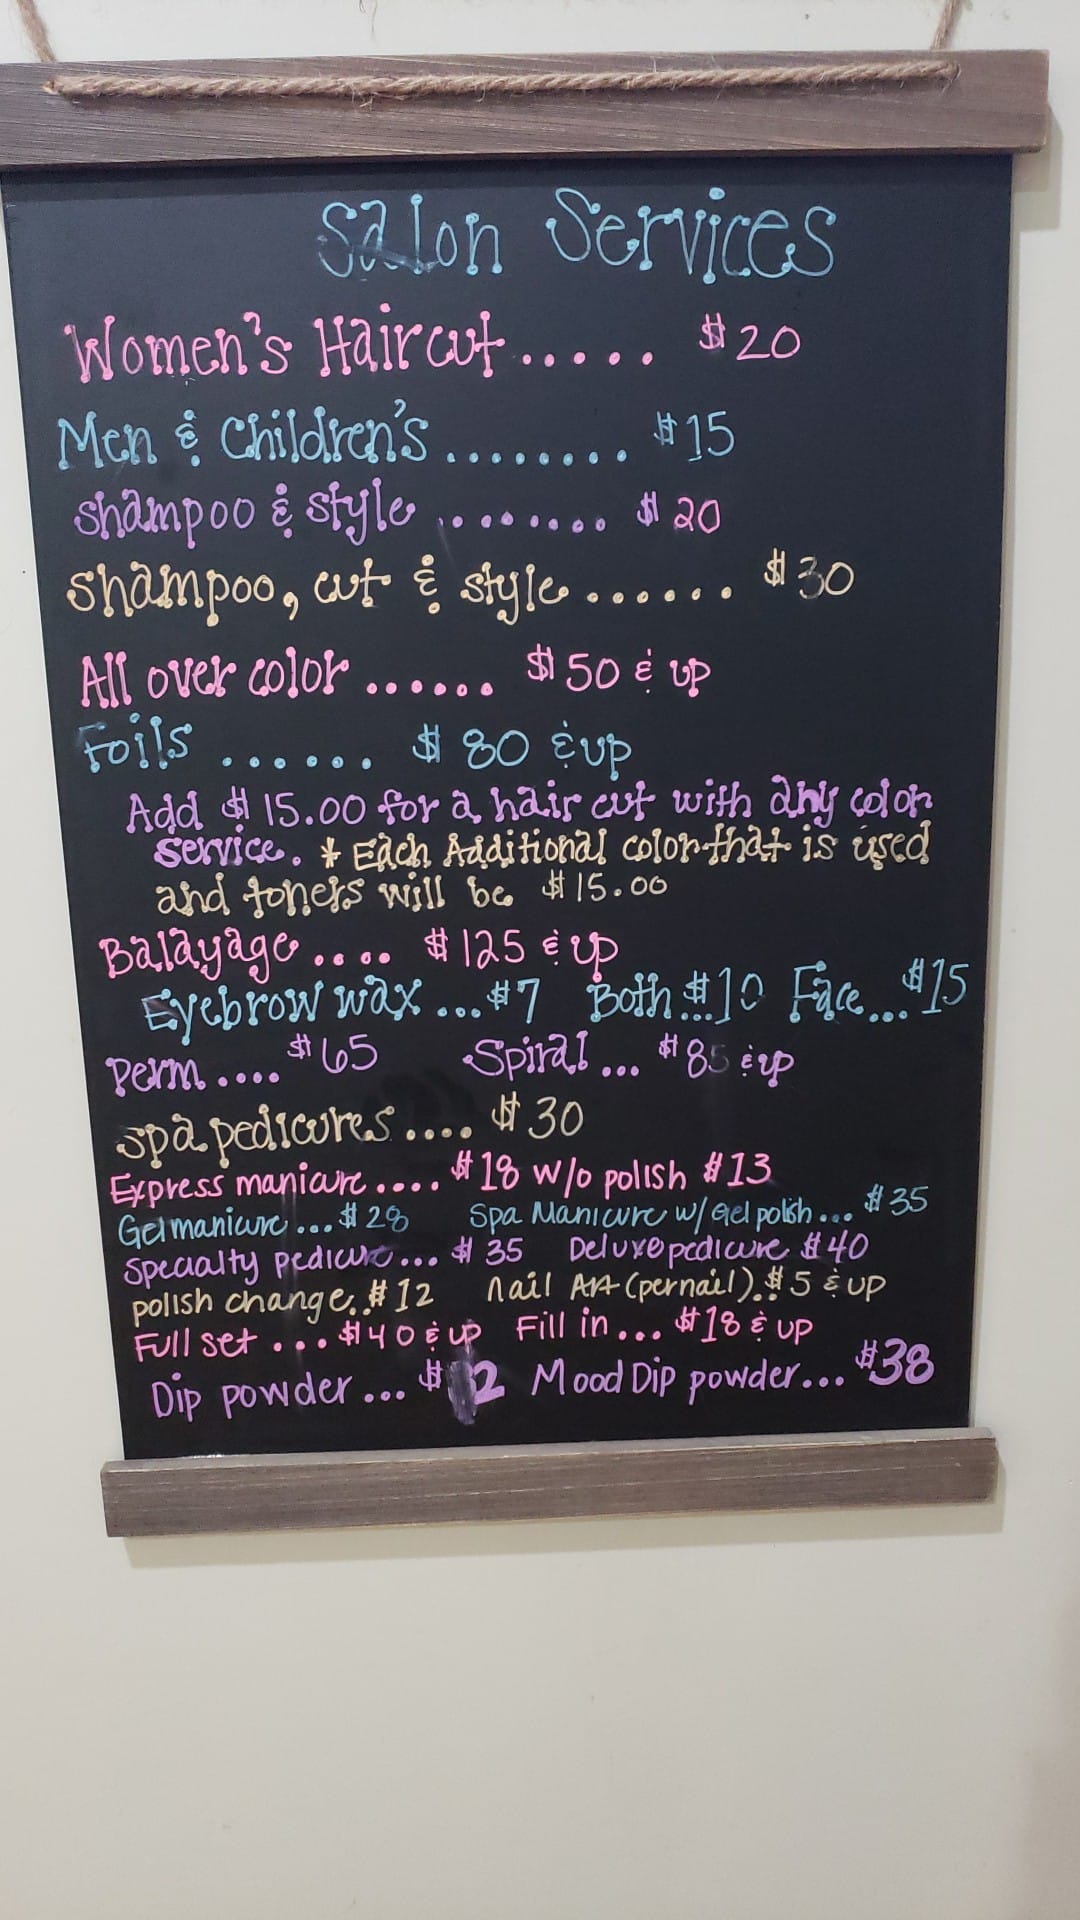 Salon Services
Women's Haircut..... $20
Men & Children's ........ $15
Shampoo & style ....... $20
Shampoo, cut & style...... $30
All over color ...... $50 & up
Foils ....... $80 & up
Add $15.00 for a hair cut with any color
service. * Each Additional color that is used
and toners will be $15.00
Balayage .... $125 & up
Eyebrow wax ...$7 Both...$10 Face... $15
Perm.... $65 Spiral... $85 & up
Spa pedicures .... $30
Express manicure.... $18 w/o polish $13
Gel manicure ...$28 Spa Manicure w/ Gel polish... $35
Specialty pedicure... $35 Deluxe pedicure $40
polish change..$12 Nail Art (per nail).$5 & up
Full set ... $40 & up Fill in... $18 & up
Dip powder ... Mood Dip powder... $38